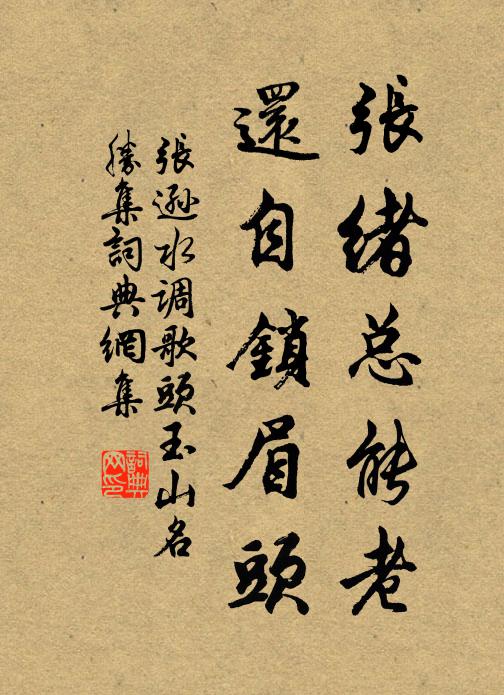 張緒总能老
還自鎖眉頭
張遜水调歌頭玉山名
勝集詞典網集
詞典网印